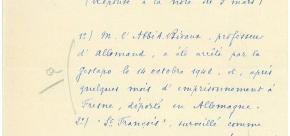 (Réponse à la note de 5 mars)
1º) M. l'Abbé, professeur
d'Allemand, a été arrêté par la
Gestapo le 14 octobre 194 et, après
quelques mois d'emprisonnement à
Fresne, déporté en Allemagne.
2º) "St François", surveillé comme